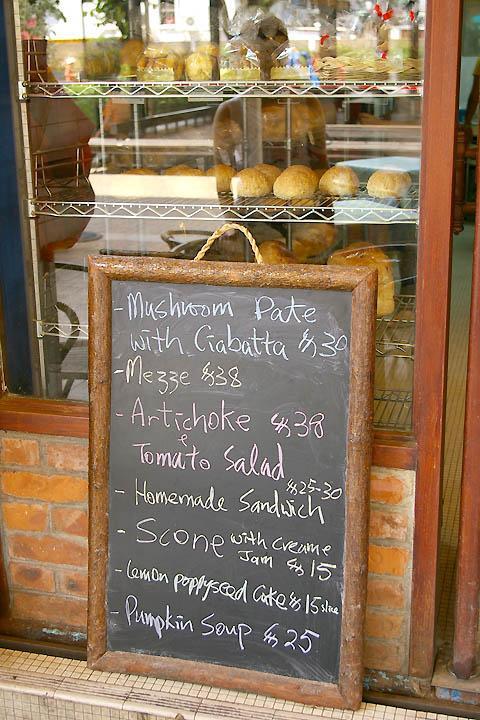 - Mushroom Pate
with Ciabatta $30
- Mezze $38
- Artichoke $38
&
Tomato Salad
$25-30
- Homemade Sandwich
- Scone with creame
Jam $15
- Lemon poppyseed Cake $15 slice
- Pumpkin Soup $25